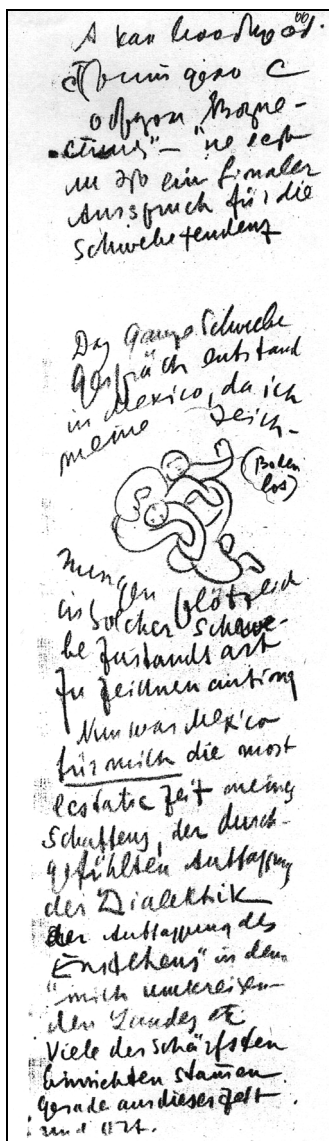 А как вообще об-
стоит дело с
образом „Возне-
сения" — не есть
ли это ein finaler
Ausspruch für die
Schwebetendenz
Das ganze Schwebe
gespräch entstand
in Mexico, da ich
meine Zeich-
(Boden
los)
nungen plötzlich
in solcher Schwe-
be Zustandsart
zu zeichnen anfing
Nun was Mexico
für mich die most
ecstatic Zeit meines
Schaffens, der durch-
gefühlten Auffassung
der Dialektik
der Auffassung des
"Enstehens" in dem
"mich umkreisen-
den Landes etc
Viele der schärfsten
stammen
gerade aus dieser Zeit
und Ort.